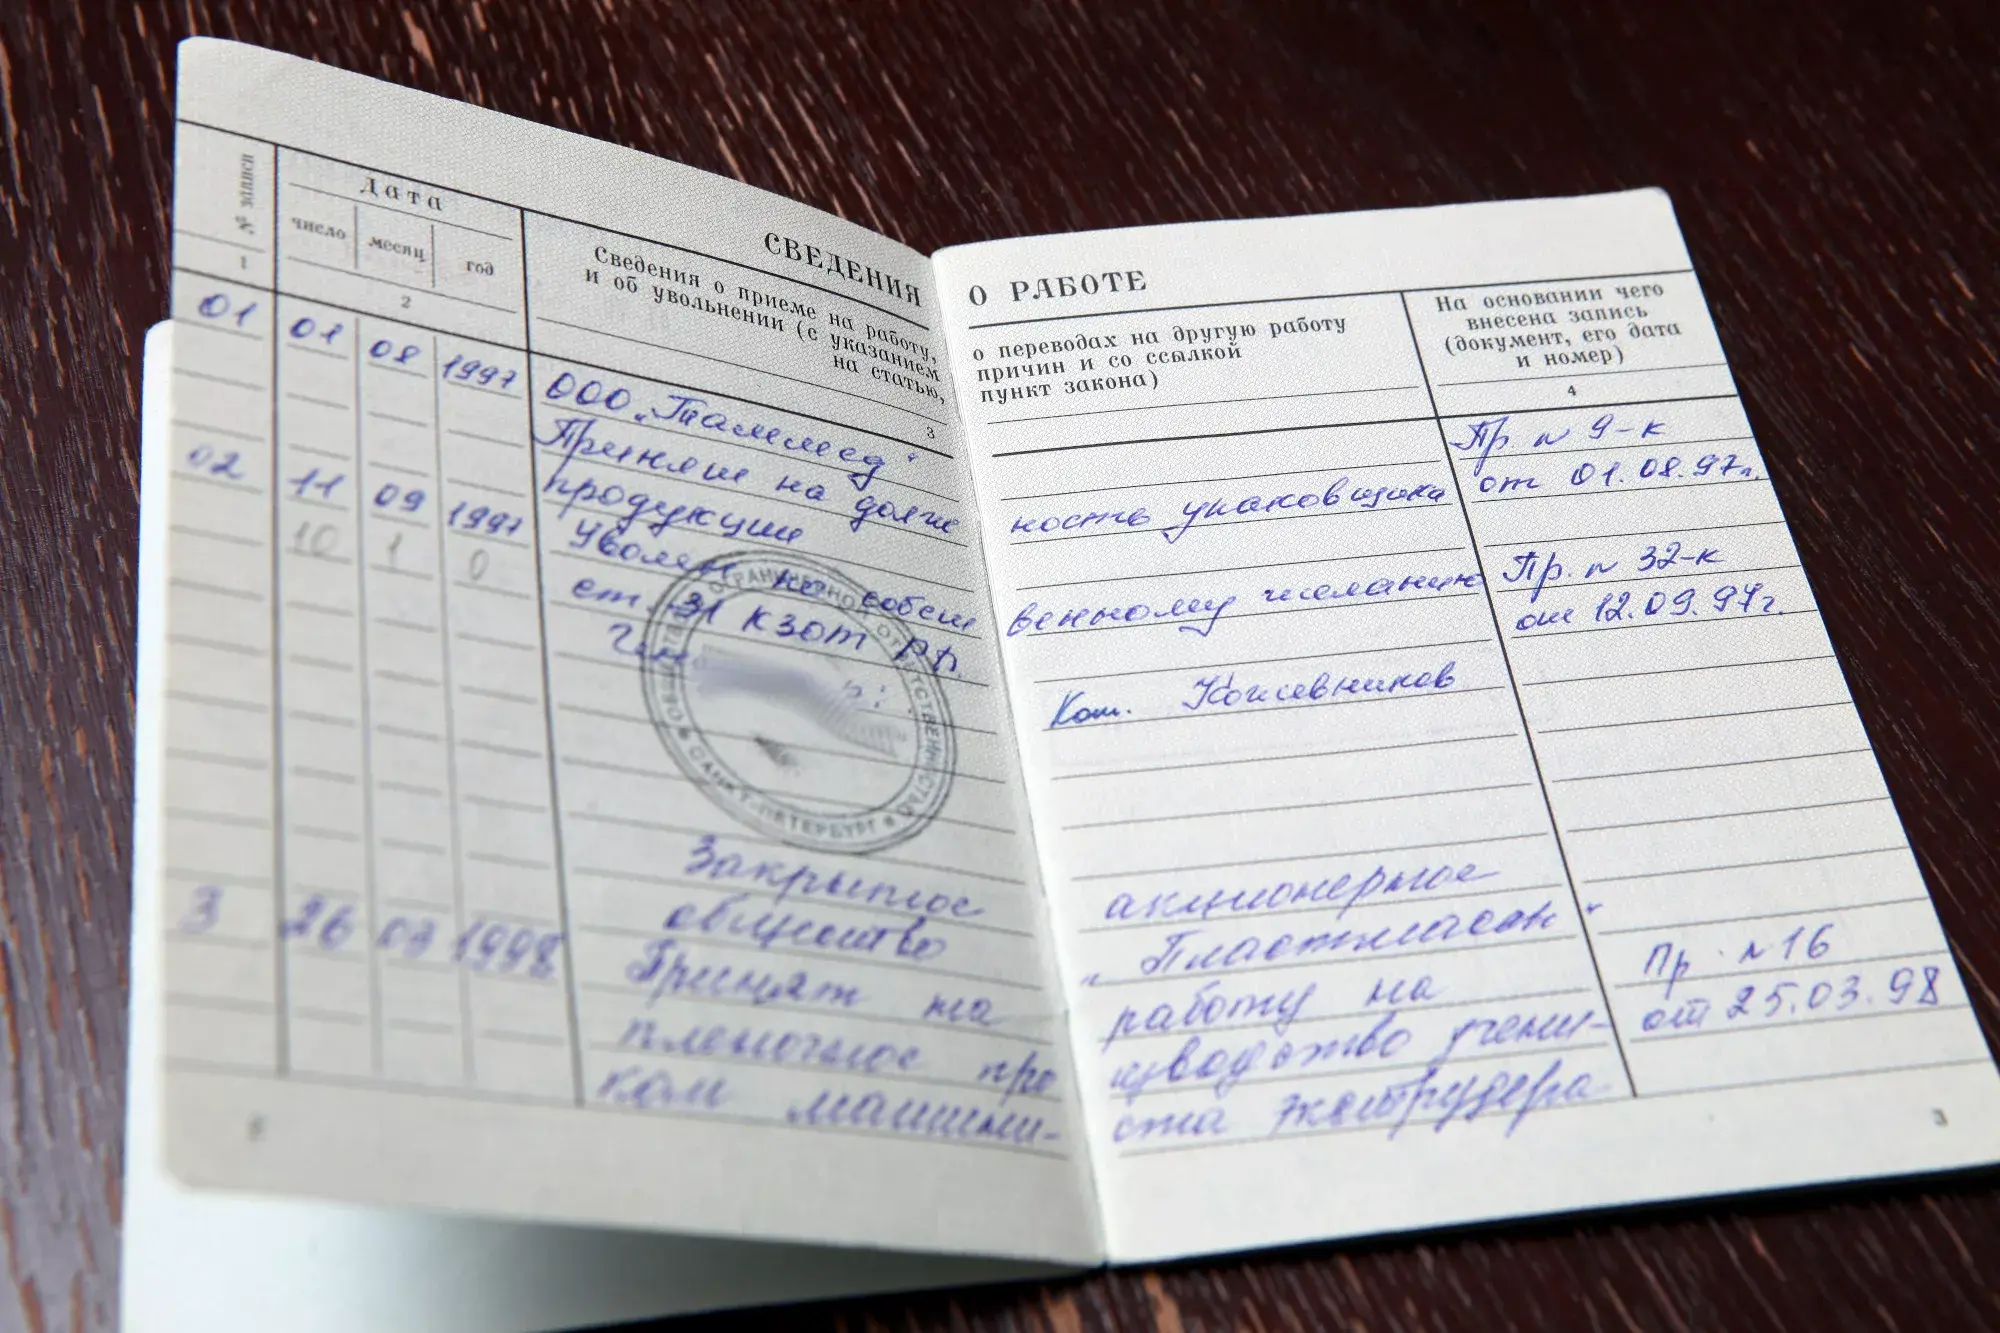 СВЕДЕНИЯ О РАБОТЕ
№ записи
Дата
число месяц год
Сведения о приеме на работу, о переводах на другую работу
и об увольнении (с указанием причин и со ссылкой
на статью, пункт закона)
На основании чего
внесена запись
(документ, его дата
и номер)
1 2 3 4
01 01 08 1997 ООО „Таммед“ Пр. № 9-к
Принят на должность упаковщика от 01.08.97г.
продукции
02 11 09 1997 Уволен по собственному желанию Пр. № 32-к
10 1 0 ст. 31 КЗОТ РФ. от 12.09.97г.
Ген. Кожевников
ОБЩЕСТВО С ОГРАНИЧЕННОЙ ОТВЕТСТВЕННОСТЬЮ
САНКТ-ПЕТЕРБУРГ
Закрытое акционерное
общество „Пластмассы“
3 26 03 1998 Принят на работу на Пр. № 16
пленочное производство учени- от 25.03.98
ком машиниста экструдера
3